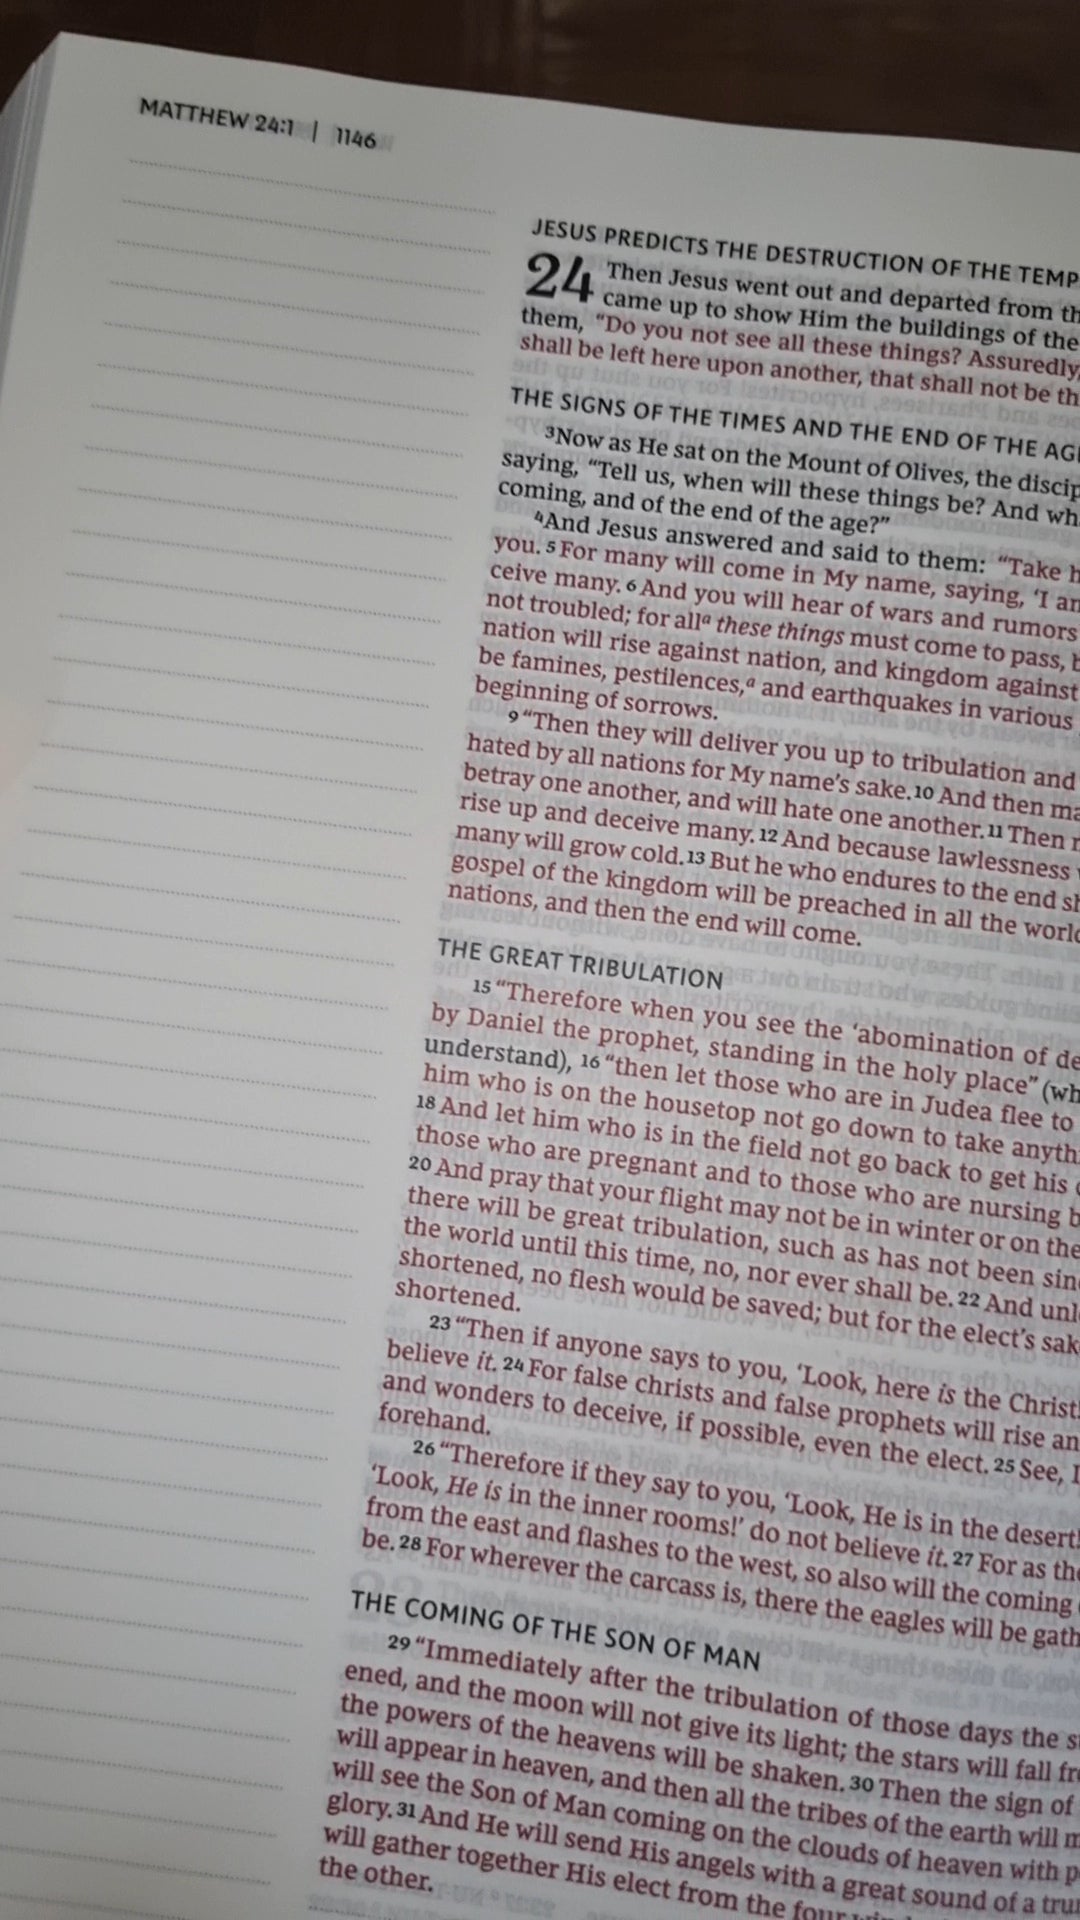 MATTHEW 24:1 | 1146
JESUS PREDICTS THE DESTRUCTION OF THE TEMP
24 Then Jesus went out and departed from th
came up to show Him the buildings of the
them, “Do you not see all these things? Assuredly,
shall be left here upon another, that shall not be th
THE SIGNS OF THE TIMES AND THE END OF THE AG
3Now as He sat on the Mount of Olives, the discip
saying, “Tell us, when will these things be? And wh
coming, and of the end of the age?”
4And Jesus answered and said to them: “Take h
you. 5 For many will come in My name, saying, ‘I am
ceive many. 6 And you will hear of wars and rumors
not troubled; for allᵃ these things must come to pass, b
nation will rise against nation, and kingdom against
be famines, pestilences,ᵃ and earthquakes in various
beginning of sorrows.
9 “Then they will deliver you up to tribulation and
hated by all nations for My name’s sake. 10 And then ma
betray one another, and will hate one another. 11 Then
rise up and deceive many. 12 And because lawlessness
many will grow cold. 13 But he who endures to the end sh
gospel of the kingdom will be preached in all the world
nations, and then the end will come.
THE GREAT TRIBULATION
15 “Therefore when you see the ‘abomination of de
by Daniel the prophet, standing in the holy place” (wh
understand), 16 “then let those who are in Judea flee to
him who is on the housetop not go down to take anyth
18 And let him who is in the field not go back to get his
those who are pregnant and to those who are nursing b
20 And pray that your flight may not be in winter or on the
there will be great tribulation, such as has not been sinc
the world until this time, no, nor ever shall be. 22 And unl
shortened, no flesh would be saved; but for the elect’s sak
shortened.
23 “Then if anyone says to you, ‘Look, here is the Christ!
believe it. 24 For false christs and false prophets will rise an
and wonders to deceive, if possible, even the elect. 25 See, I
forehand.
26 “Therefore if they say to you, ‘Look, He is in the desert!
‘Look, He is in the inner rooms!’ do not believe it. 27 For as the
from the east and flashes to the west, so also will the coming
be. 28 For wherever the carcass is, there the eagles will be gath
THE COMING OF THE SON OF MAN
29 “Immediately after the tribulation of those days the s
ened, and the moon will not give its light; the stars will fall fr
the powers of the heavens will be shaken. 30 Then the sign of
will appear in heaven, and then all the tribes of the earth will m
will see the Son of Man coming on the clouds of heaven with p
glory. 31 And He will send His angels with a great sound of a tru
will gather together His elect from the four
the other.